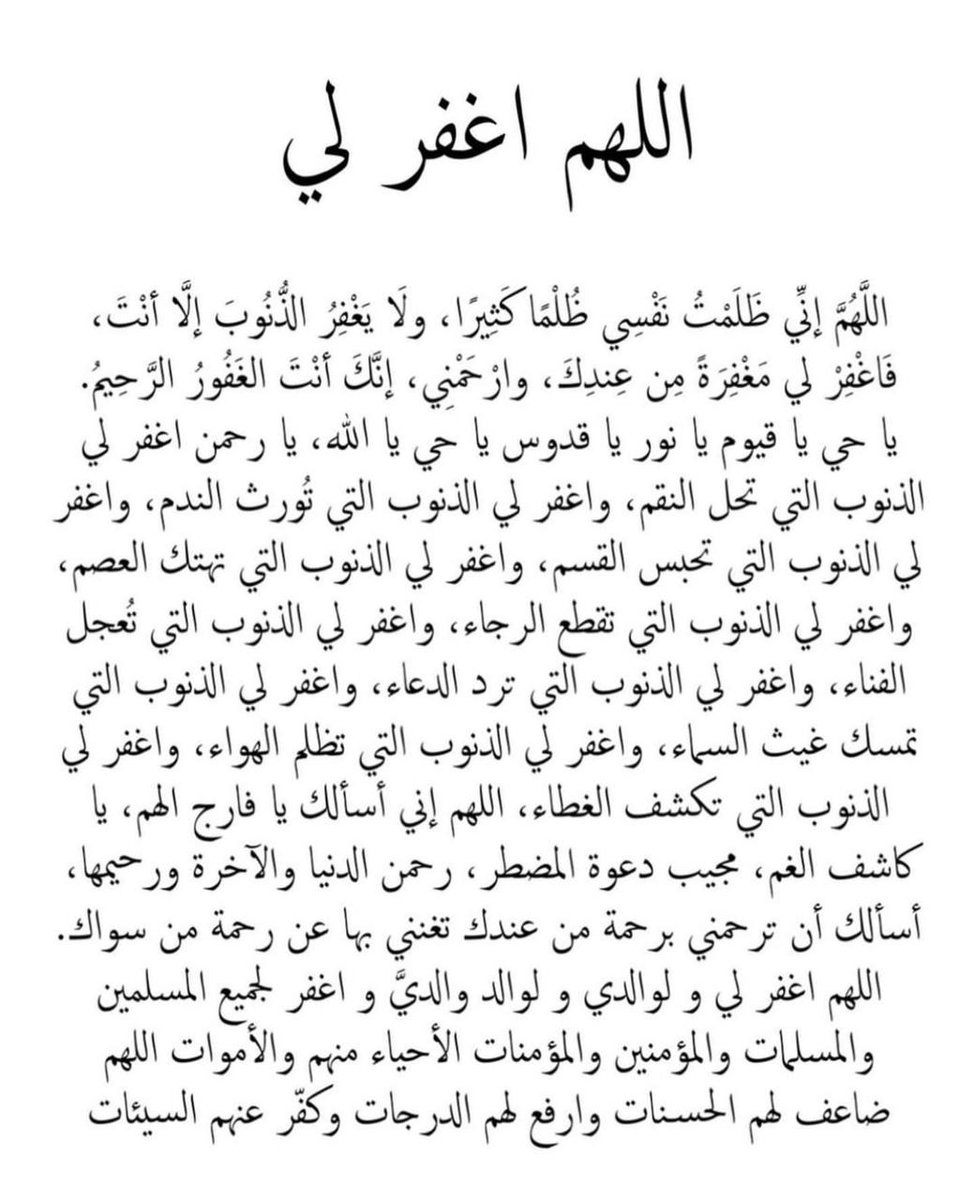 اللهم اغفر لي
اللَّهُمَّ إنِّي ظَلَمْتُ نَفْسِي ظُلْمًا كَثِيرًا، ولَا يَغْفِرُ الذُّنُوبَ إلَّا أنْتَ،
فَاغْفِرْ لي مَغْفِرَةً مِن عِندِكَ، وارْحَمْنِي، إنَّكَ أنْتَ الغَفُورُ الرَّحِيمُ.
يا حي يا قيوم يا نور يا قدوس يا حي يا الله، يا رحمن اغفر لي
الذنوب التي تحل النقم، واغفر لي الذنوب التي تُورث الندم، واغفر
لي الذنوب التي تحبس القسم، واغفر لي الذنوب التي تهتك العصم،
واغفر لي الذنوب التي تقطع الرجاء، واغفر لي الذنوب التي تُعجل
الفناء، واغفر لي الذنوب التي ترد الدعاء، واغفر لي الذنوب التي
تمسك غيث السماء، واغفر لي الذنوب التي تظلم الهواء، واغفر لي
الذنوب التي تكشف الغطاء، اللهم إني أسألك يا فارج الهم، يا
كاشف الغم، مجيب دعوة المضطر، رحمن الدنيا والآخرة ورحيمها،
أسألك أن ترحمني برحمة من عندك تغنني بها عن رحمة من سواك.
اللهم اغفر لي و لوالدي و لوالد والديَّ و اغفر لجميع المسلمين
والمسلمات والمؤمنين والمؤمنات الأحياء منهم والأموات اللهم
ضاعف لهم الحسنات وارفع لهم الدرجات وكفّر عنهم السيئات